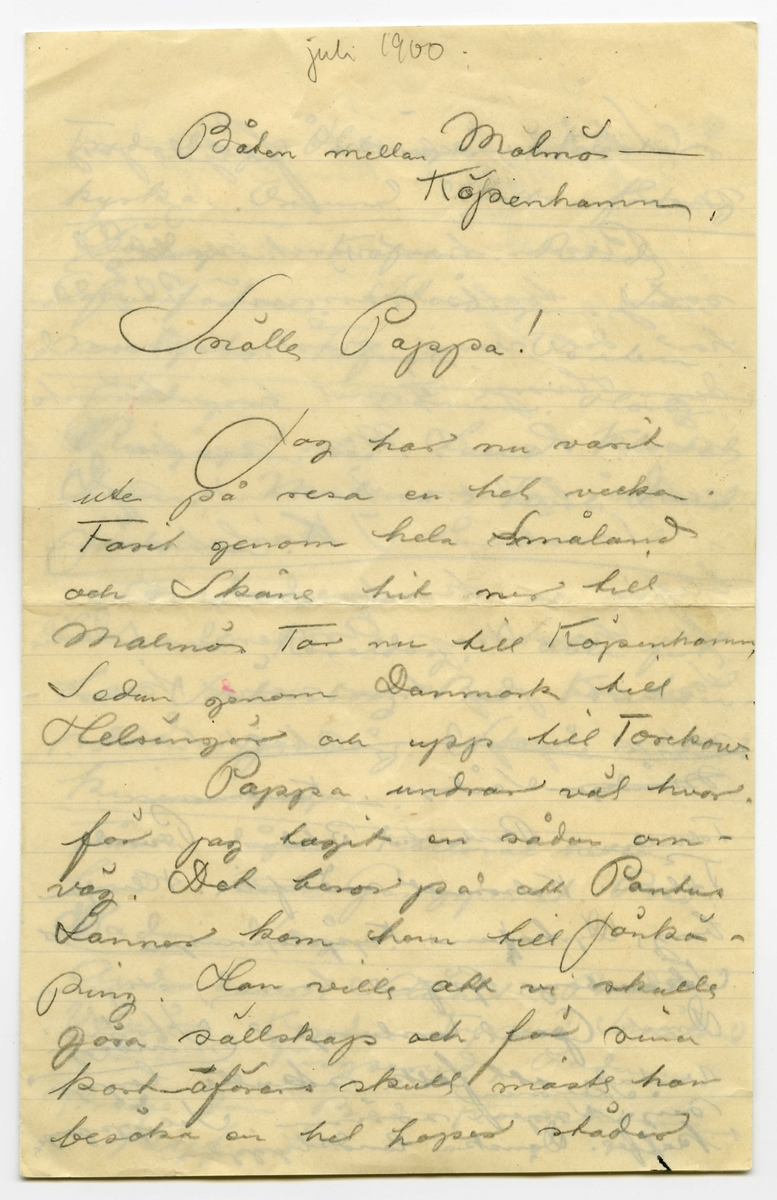 juli 1900.
Båten mellan Malmö —
Köpenhamn,
Snälla Pappa!
Jag har nu varit
ute på resa en hel vecka.
Farit genom hela Småland
och Skåne hit ner till
Malmö. Far nu till Köpenhamn,
Sedan genom Danmark till
Helsingör och upp till Torekow.
Pappa undrar väl hvar-
för jag tagit en sådan om-
väg. Det beror på att Pontus
Lanner kom hem till Jönkö-
ping. Han ville att vi skulle
göra sällskap och för sina
kort-affärers skull måste han
besöka en hel hoper städer